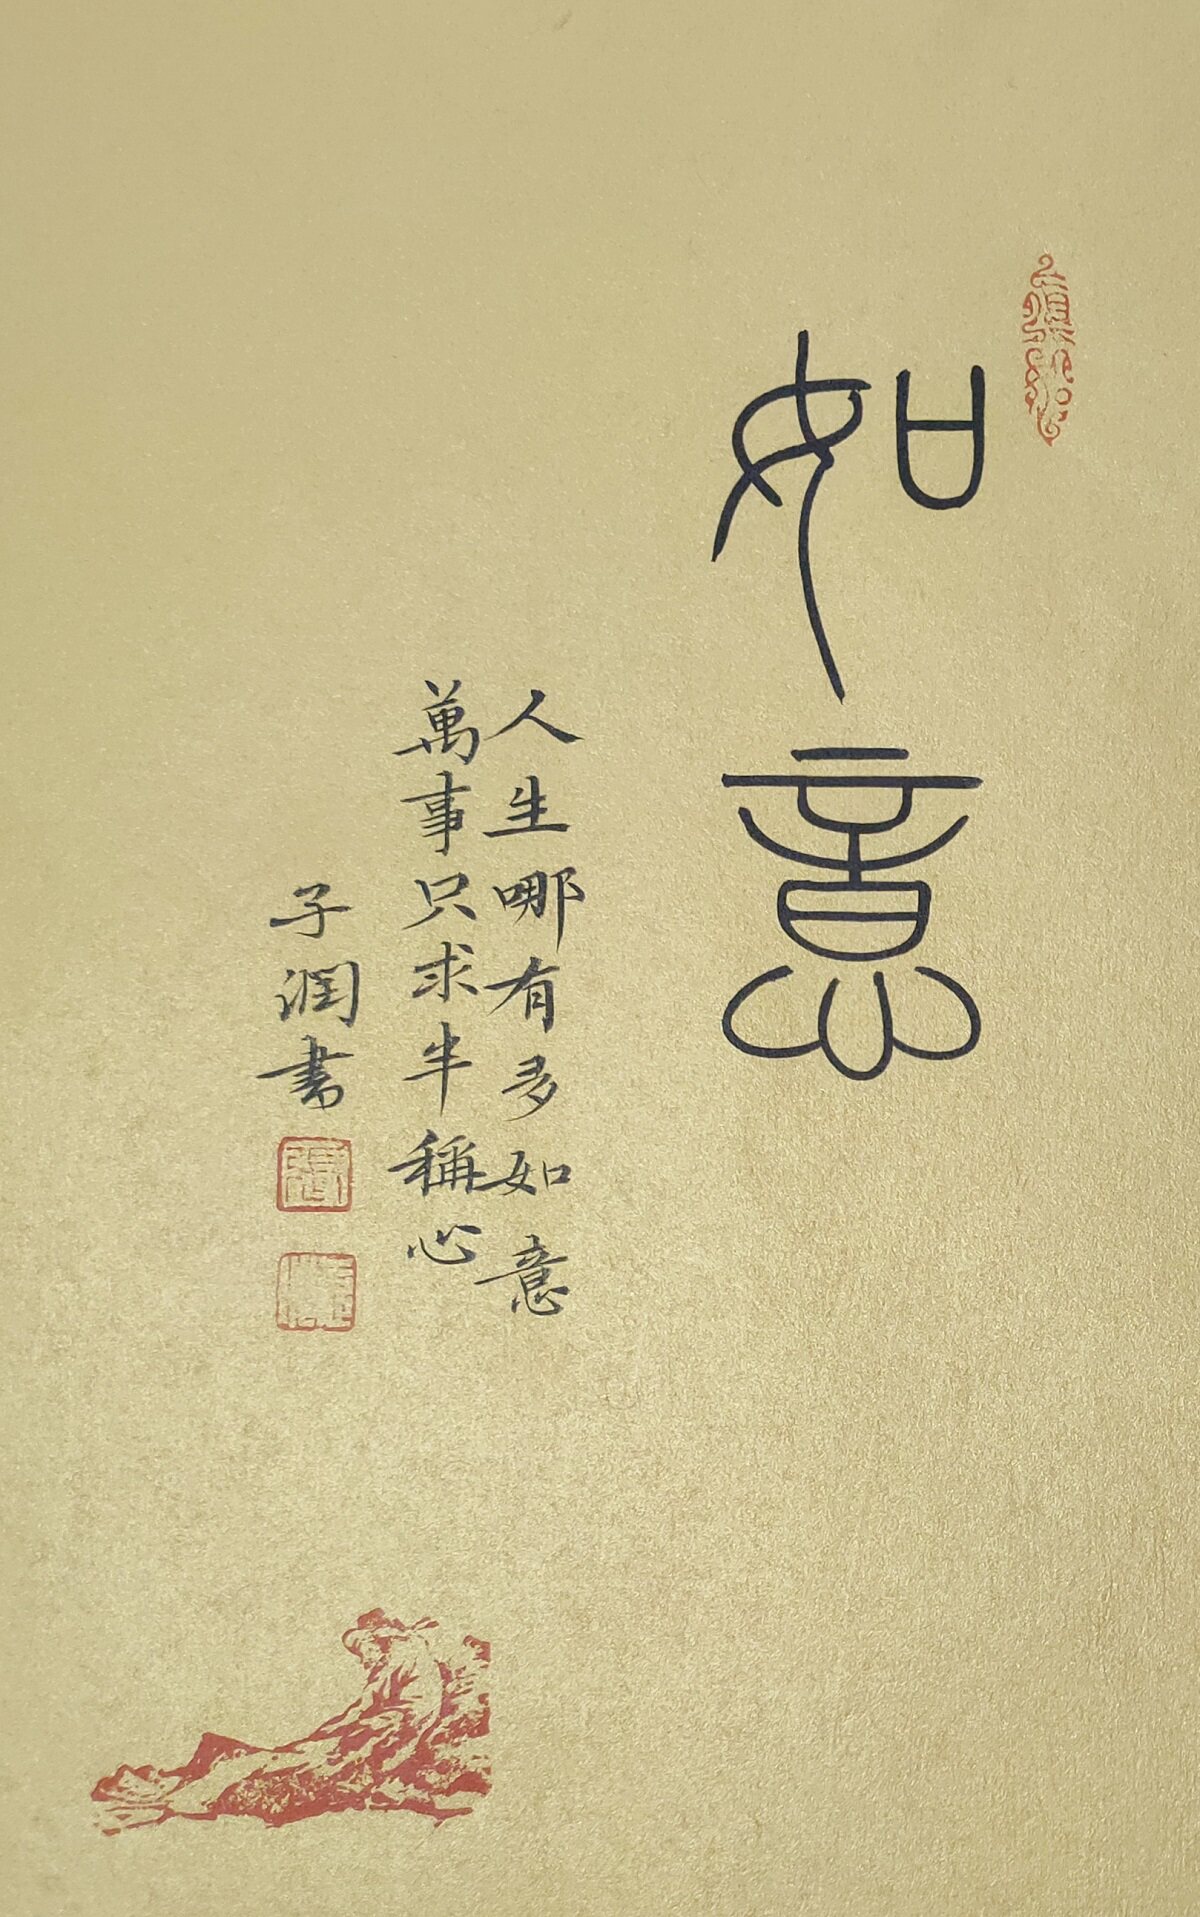 如意
人生哪有多如意
萬事只求半稱心
子潤書